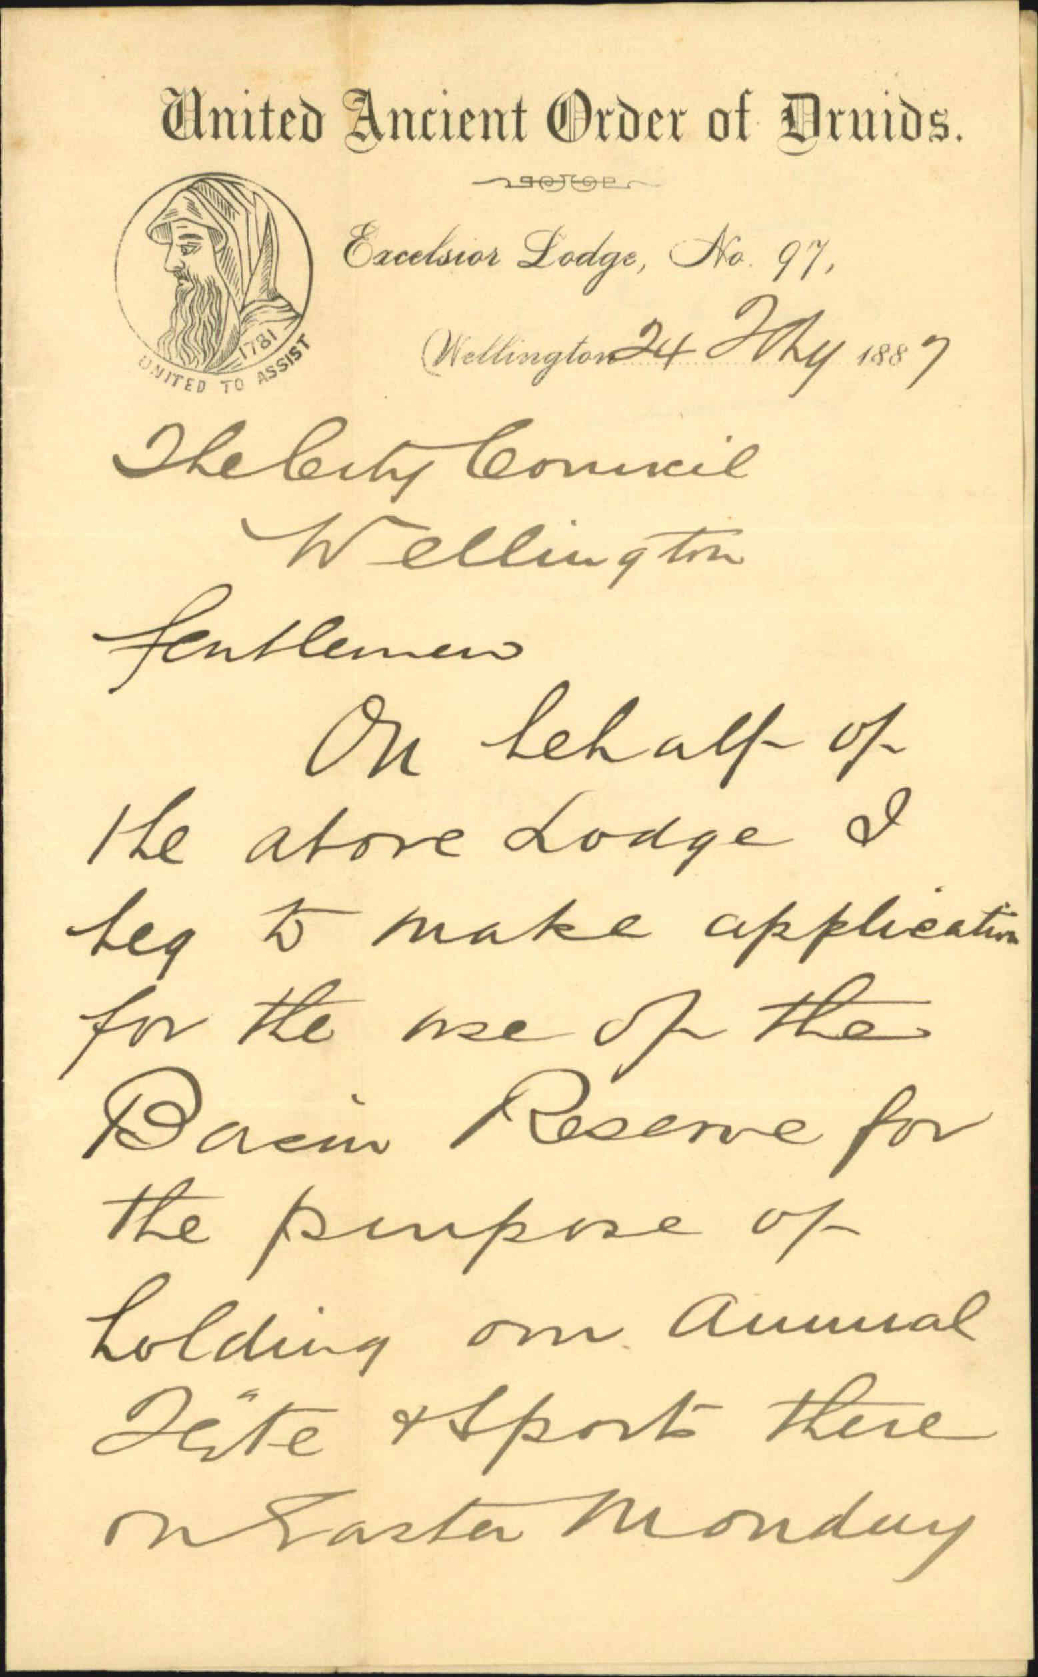 United Ancient Order of Druids.
Excelsior Lodge, No. 97,
Wellington 24 Feby 1887
1781
UNITED TO ASSIST
The City Council
Wellington
Gentlemen
On behalf of
the above Lodge I
beg to make application
for the use of the
Basin Reserve for
the purpose of
holding our Annual
Fête & Sports there
on Easter Monday